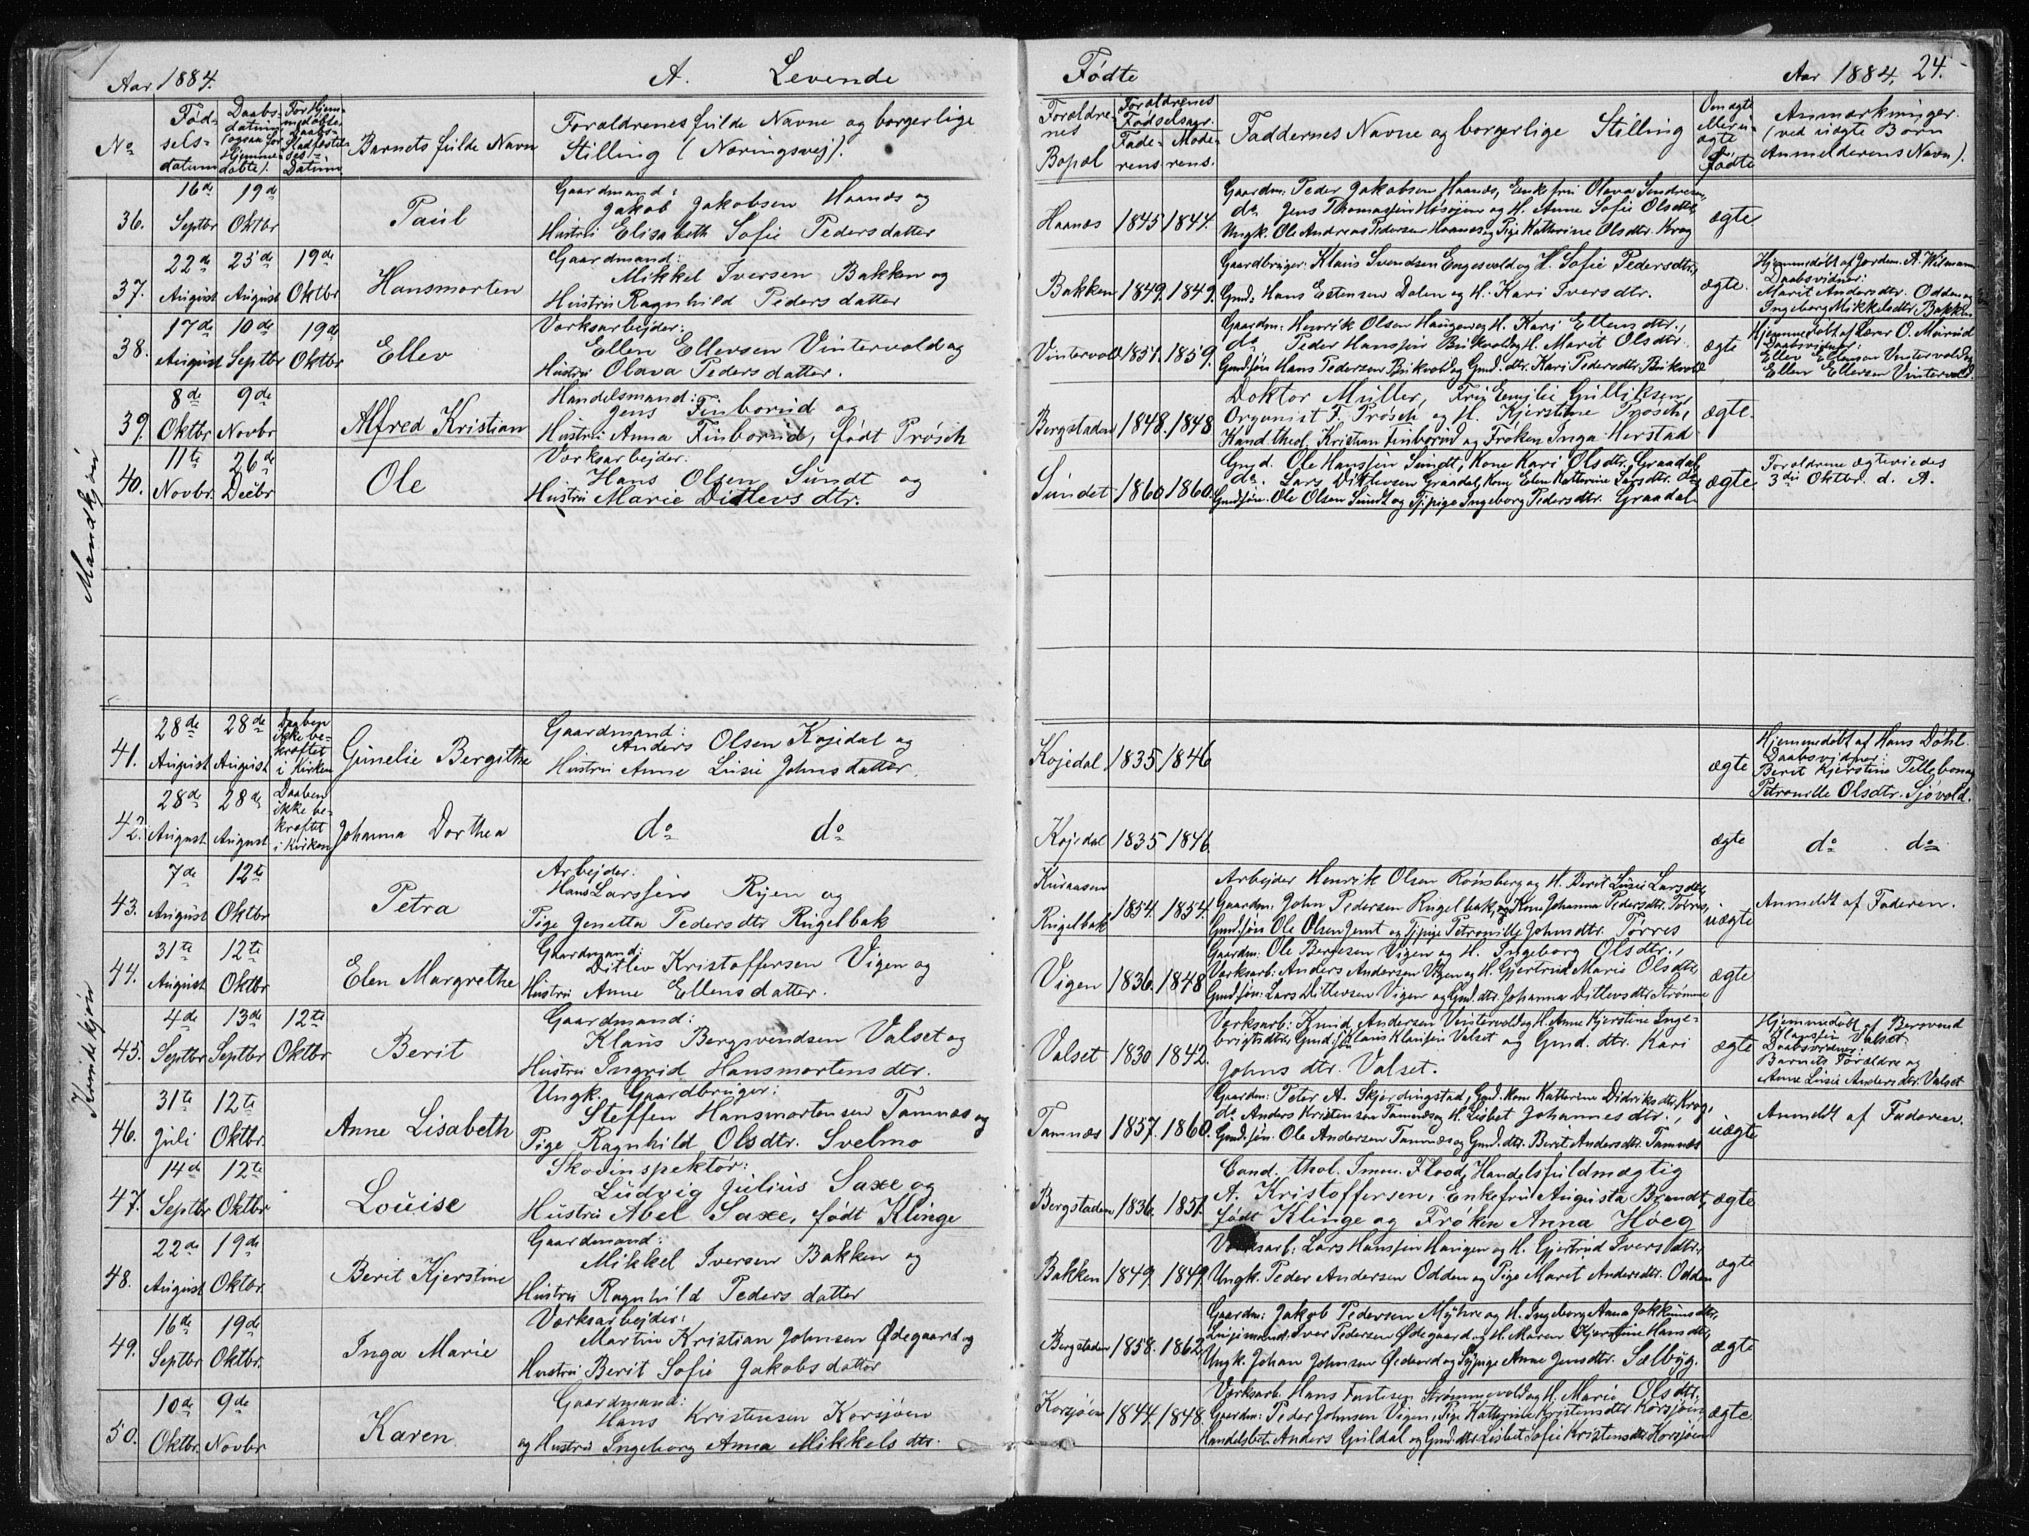 Aar 1884. A. Levende Fødte Aar 1884. 24.
No
Fødselsdatum
Daabsdatum (ogsaa for Hjemmedøbte).
For Hjemmedøbte Daabs-Stadfæstelses-Datum
Barnets fulde Navn
Forældrenes fulde Navne og borgerlige
Stilling (Næringsvej).
Forældrenes Bopæl
Forældrenes Fødselsaar
Faderens Moderens
Faddernes Navne og borgerlige Stilling
Om ægte eller uægte Fødte
Anmærkninger
(ved uægte Børn
Anmelderens Navn).
Mandkjøn
36. 16de Septbr 19de Oktbr Paul
Gaardmand:
Jakob Jakobsen Haanæs og
Hustru Elisabeth Sofie Pedersdatter
Haanæs 1845 1844.
Gaardm: Peder Jakobsen Haanæs, Enkefru Olava
do Jens Thomassen og H. Anne Sofie Olsdtr,
Ungk. Ole Andreas Pedersen Haanæs og Pige Katherine Olsdtr. Krog
ægte.
37. 22de August 25de August 19de Oktbr Hansmorten
Gaardmand:
Mikkel Iversen Bakken og
Hustru Ragnhild Pedersdatter
Bakken 1849. 1849.
Gaardbruger: Klaus Svendsen Engesvold og H. Sofie Pedersdtr,
Gmd. Hans Estensen Dalen og H. Kari Iversdtr.
ægte.
Hjemmedøbt af Jordm. A.
Daabsvidner:
Marit Andersdtr. Odden og
Ingeborg Mikkelsdtr. Bakken
38. 17de August 10de Septbr 19de Oktbr Ellev
Værksarbejder:
Ellen Ellevsen Vintervold og
Hustru Olava Pedersdatter.
Vintervold 1851. 1859.
Gaardm: Henrik Olsen Haugen og H. Kari Ellensdtr.,
do Peder Hanssen Brikvold og H. Marit Olsdtr
Gmdsøn Hans Pedersen Brikvold og Gmd. dtr. Kari Pedersdtr. Brikvold
ægte
Hjemmedøbt af Lærer O.
Daabsvidner:
Ellev Ellensen Vintervold og
Ellen Ellevsen Vintervold.
39. 8de Oktbr 9de Novbr Alfred Kristian
Handelsmand:
Jens Finborud og
Hustru Anna Finborud, født Prøsch
Bergstaden 1848. 1848
Doktor Müller, Frk Emilie Gulliksen,
Organist F. Prøsch og H. Kjerstine Prøsch,
Kand. theol. Kristian Finborud og Frøken Inga Herstad
ægte.
40. 11te Novbr. 26de Decbr Ole
Værksarbejder:
Hans Olsen Sundt og
Hustru Marie Ditlevsdtr.
Sundet 1860 1860.
Gmd. Ole Hanssen Sundt, Kone Kari Olsdtr, Graadal
do. Lars Ditlevsen Graadal, Kone Elen Katterine Larsdtr. do
Gmdsøn. Ole Olsen Sundt og Tj.pige Ingeborg Pedersdtr. Graadal
ægte
Forældrene ægteviedes
3die Oktbr. d. A.
Kvindekjøn
41. 28de August 28de August Daaben ikke bekræftet i Kirken Gunelie Bergithe
Gaardmand:
Anders Olsen Kojedal og
Hustru Anne Lusie Johnsdatter.
Kojedal 1835 1846
ægte
Hjemmedøbt af Hans Døhl
Daabsvidner:
Berit Kjerstine Tillebon og
Petronille Olsdtr. Sjøvold.
42. 28de August 28de August Daaben ikke bekræftet i Kirken Johanna Dorthea
do do
Kojedal 1835 1846.
ægte
do do
43. 7de August 12te Oktbr Petra
Arbejder:
Hans Larssen Ryen og
Pige Jenetta Pedersdtr Rugelbak
Kuraasen
Rugelbak 1854. 1854.
Arbejder Henrik Olsen Rønsberg og H. Berit Lusie Larsdtr,
Gaardm. John Pedersen Rugelbak, og Kone Johanna Pedersdtr. Torres,
Gmdsøn Ole Olsen Jemt og Tj.pige Petronille Johnsdtr. Torres
uægte
Anmeldt af Faderen.
44. 31te August 12te Oktbr Elen Margrethe
Gaardmand:
Ditlev Kristoffersen Vigen og
Hustru Anne Ellensdatter.
Vigen 1836. 1848
Gaardm: Ole Berntsen Vigen og H. Ingeborg Olsdtr.,
Værksarb: Anders Andersen Vigen og H. Gjertrud Marie Olsdtr
Gmdsøn: Lars Ditlevsen Vigen og Gmd.dtr. Johanna Ditlevsdtr Strømme
ægte
45. 4de Septbr 13de Septbr 12te Oktbr Berit
Gaardmand:
Klaus Bergsvendsen Valset og
Hustru Ingrid Hansmortensdtr.
Valset 1830 1842.
Værksarb: Knud Andersen Vintervold og H. Anne Kjerstine Inge-
brigtsdtr, Gmd.søn Klaus Klausen Valset og Gmd. dtr. Kari
Johns dtr. Valset.
ægte
Hjemmedøbt af Bersvend
Klaussen Valset.
Daabsvidner:
Barnets Forældre og
Anne Lusie Andersdtr. Valset
46. 31te Juli 12te Oktbr. Anne Lisabeth
Ungk. Gaardbruger:
Steffen Hansmortensen Tamnæs og
Pige Ragnhild Olsdtr. Svelmo
Tamnæs 1857. 1860.
Gaardm: Peter A. Skjerdingstad, Gmd. Kone Katterine Didriksdtr. Krog,
do Anders Kristensen Tamnæs og H. Lisbet Johannesdtr,
Gmdsøn. Ole Andersen Tamnæs og Gmd. dtr. Berit Andersdtr. Tamnæs
uægte
Anmeldt af Faderen.
47. 14de Septbr 12te Oktbr Louise
Skovinspektør:
Ludvig Julius Saxe og
Hustru Abel Saxe, født Klinge
Bergstaden 1836. 1851.
Cand. thol. Imm. Flood, Handelsfuldmægtig
A. Kristoffersen, Enkefru Augusta Brandt,
født Klinge og Frøken Anna Høeg
ægte
48. 22de August 19de Oktbr. Berit Kjerstine
Gaardmand:
Mikkel Iversen Bakken og
Hustru Ragnhild Pedersdatter
Bakken 1849. 1849.
Værksarb: Lars Hanssen Haugen og H. Gjertrud Iversdtr.
Ungk. Peder Andersen Odden og Pige Marit Andersdtr. Odden
ægte
49. 16de Septbr 19de Oktbr. Inga Marie
Værksarbejder:
Martin Kristian Johnsen Ødegaard og
Hustru Berit Sofie Jakobsdatter
Bergstaden 1858. 1862.
Gaardm: Jakob Pedersen Myhre og H. Ingeborg Anna Jokkumsdtr,
Iver Pedersen Ødegaard og H. Maren Kjerstine Hansdtr,
Ungk. Johan Johnsen Ødegaard og Sypige Anne Jensdtr. Sælbyg.
ægte
50. 10de Oktbr. 9de Novbr Karen
Gaardmand:
Hans Kristensen Korsjøen
og Hustru Ingeborg Anna Mikkelsdtr.
Korsjøen 1844. 1848.
Værksarb. Hans Fastesen Strømmevold og H. Marie Olsdtr,
Gaardm: Peder Johnsen Vigen, Pige Katherine Kristensdtr Korsjøen,
Handelsbetj. Anders Guldal og Gmd.dtr. Lisbet Sofie Kristensdtr Korsjøen
ægte.